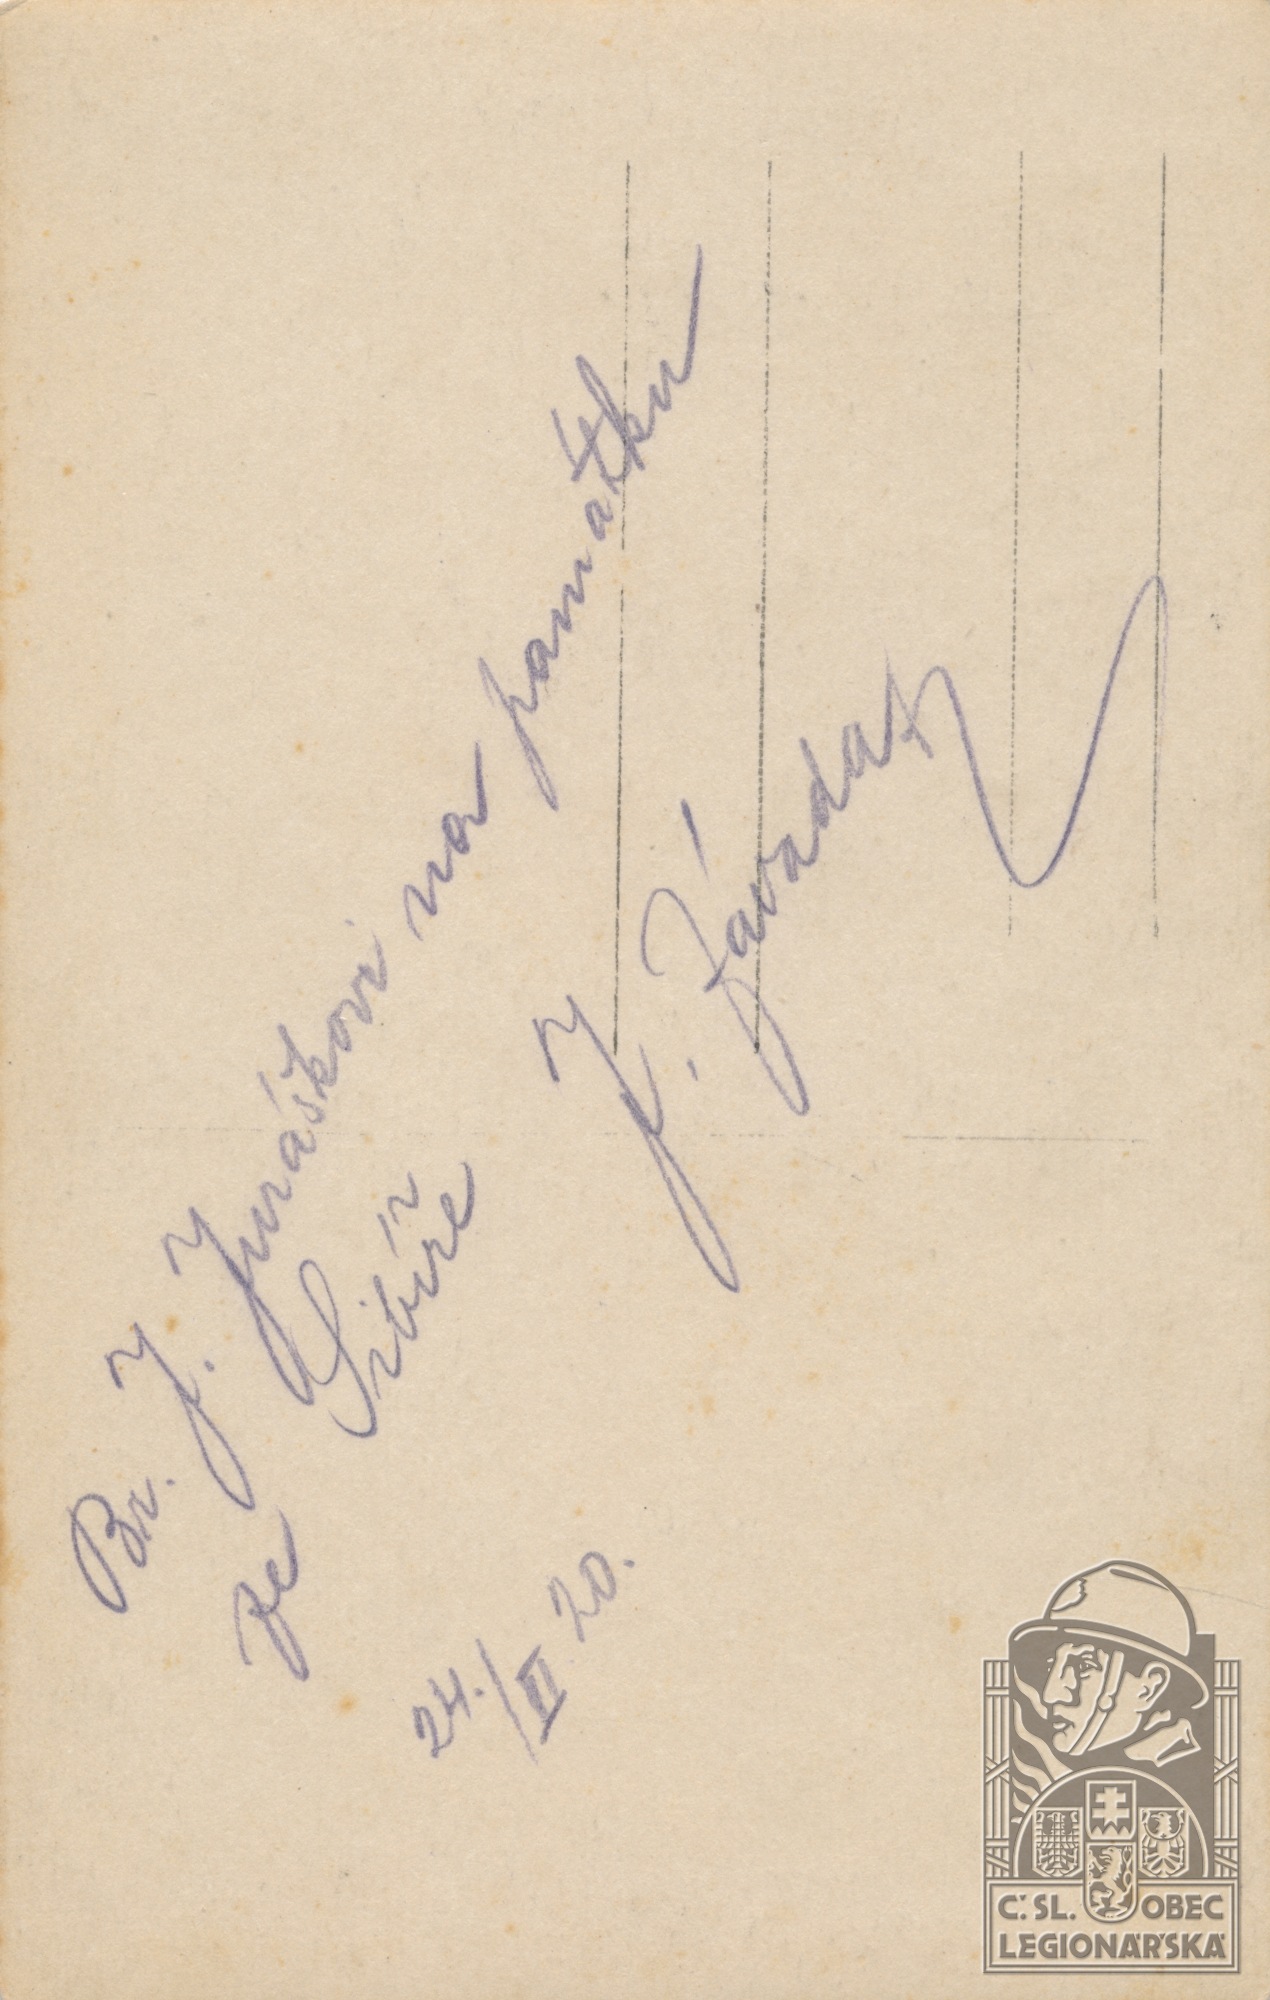 Br. J. Juráškovi na památku
ze Sibíře
J. Závada
24./II 20.
Č. SL. OBEC
LEGIONÁŘSKÁ